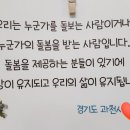 우리는 누군가를 돌보는 사람이거나
누군가의 돌봄을 받는 사람입니다.
돌봄을 제공하는 분들이 있기에
이 유지되고 우리의 삶이 유지됩니
경기도 과천시